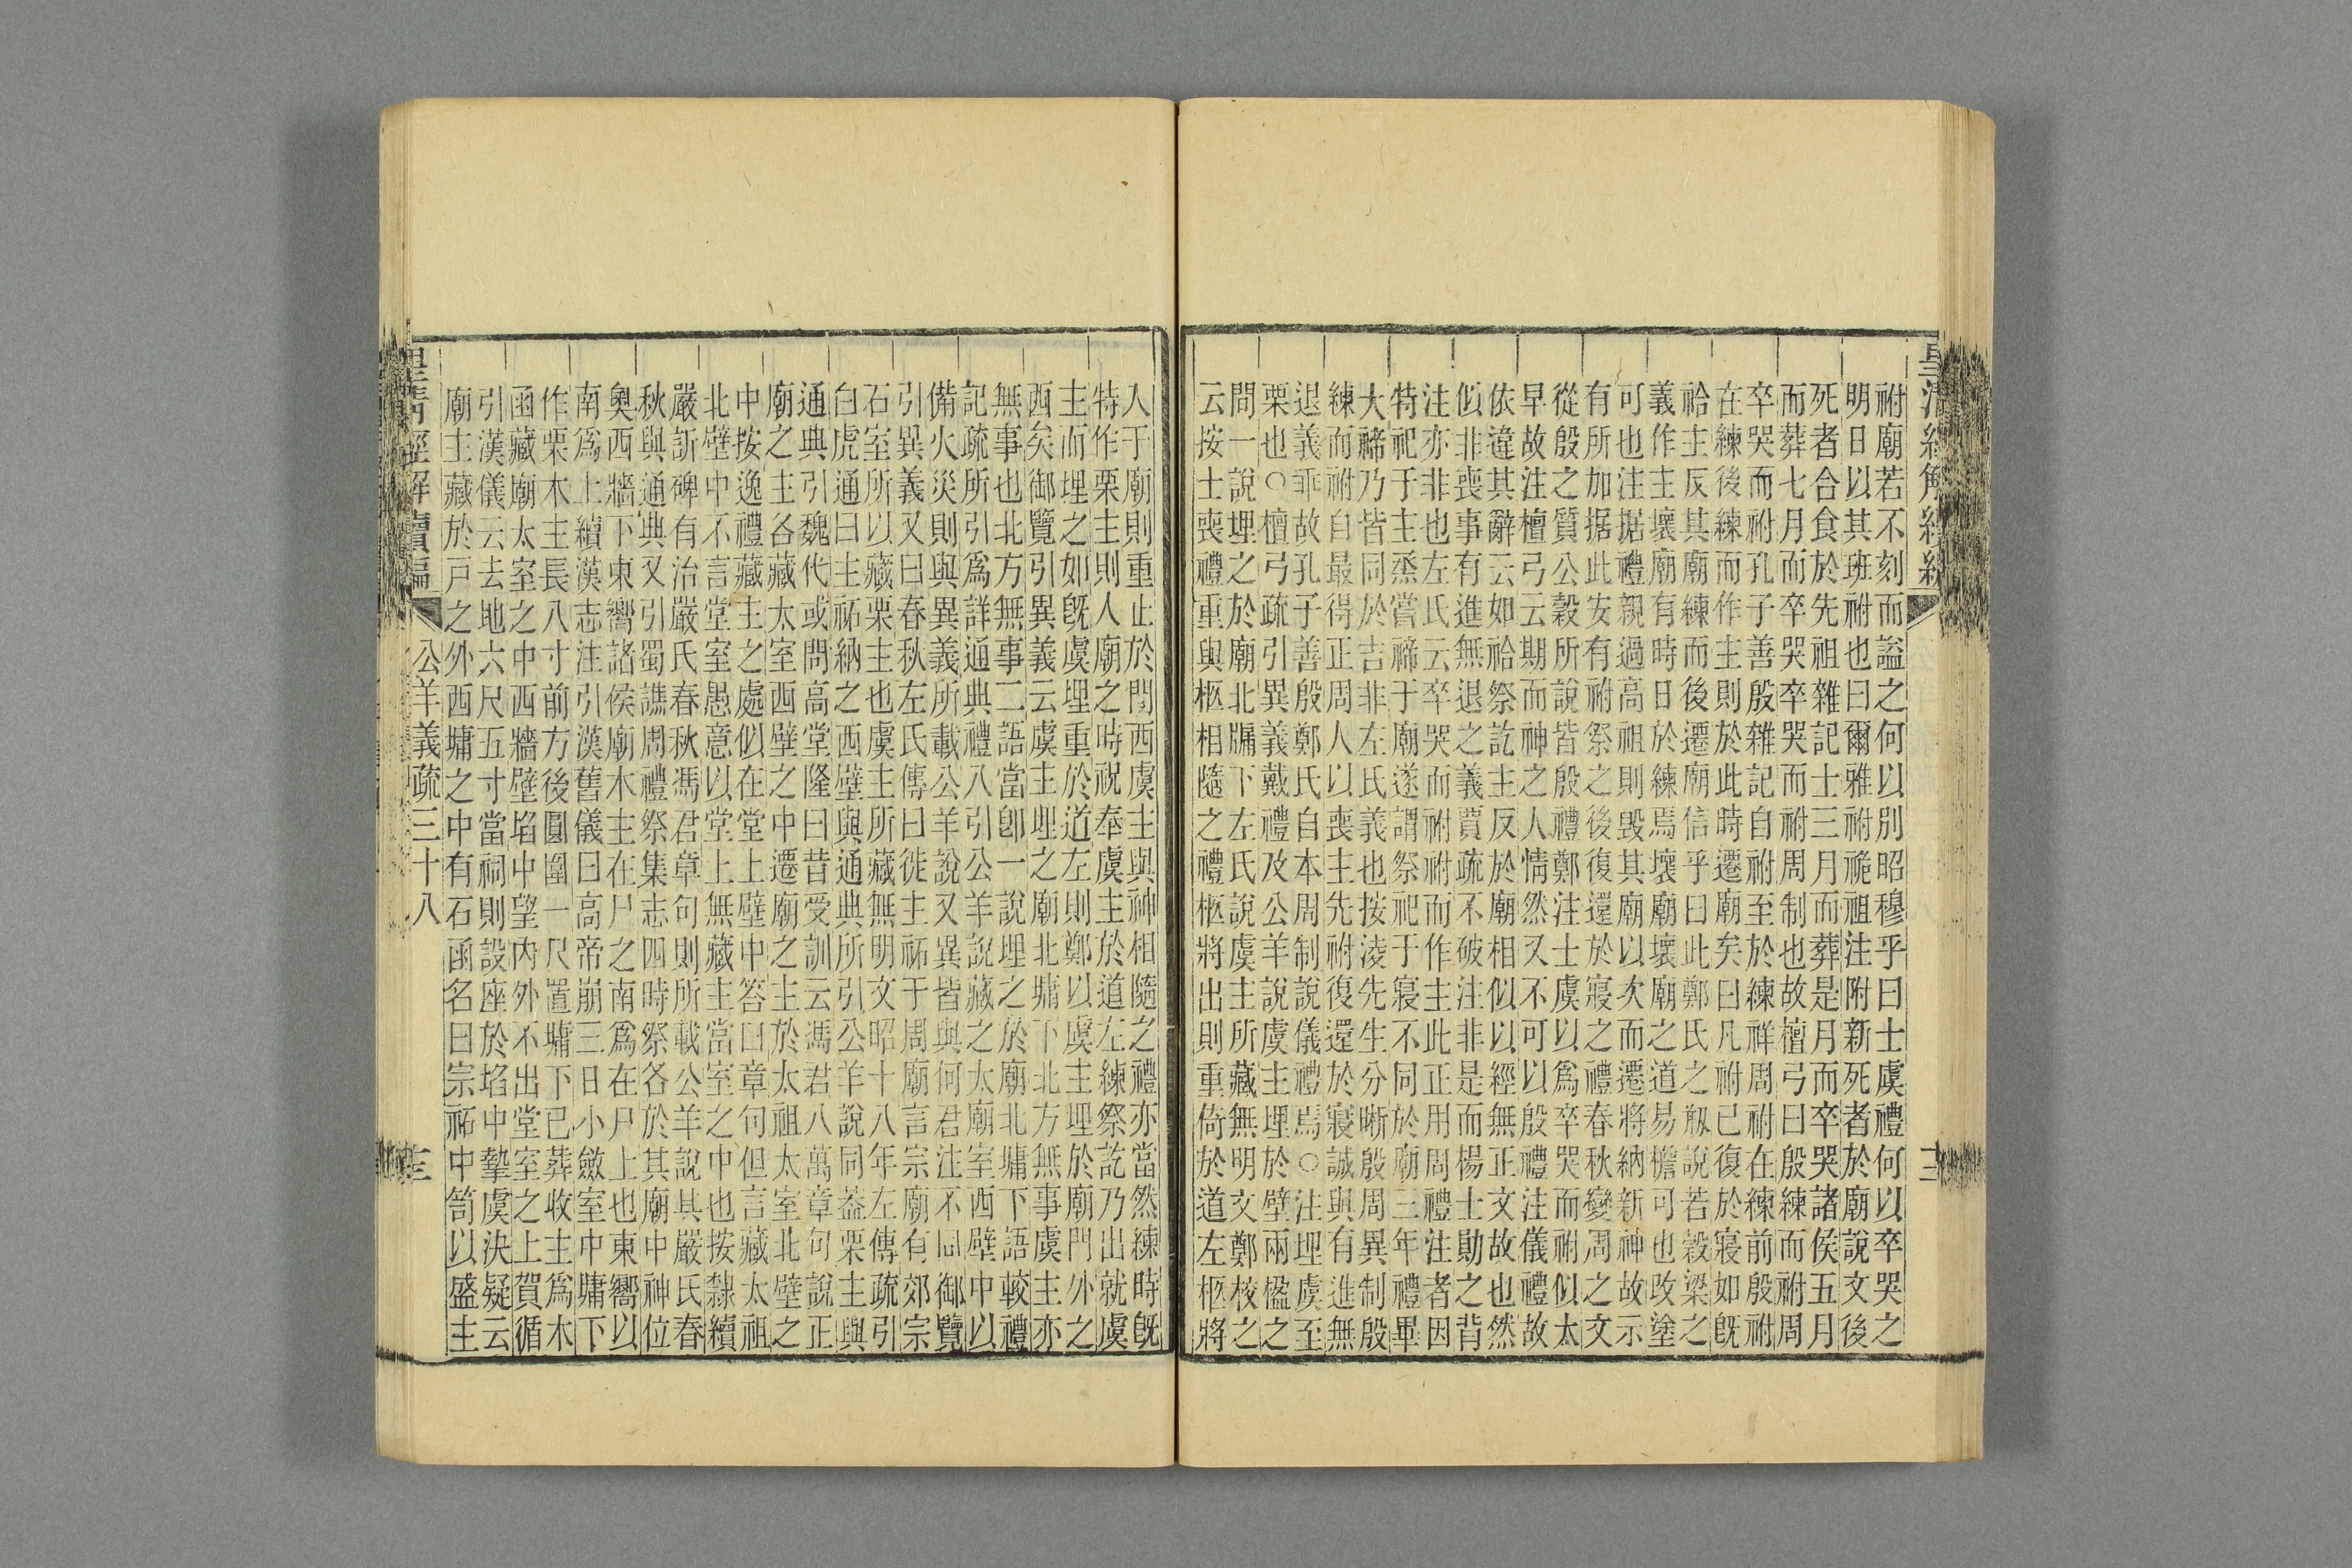 祔廟若不刻而謚之何以別昭穆乎曰士虞禮何以卒哭之
明日以其班祔也曰爾雅祔祪祖注附新死者於廟說文後
死者合食於先祖雜記士三月而葬是月而卒哭諸侯五月
而葬七月而卒哭卒哭而祔周制也故檀弓曰殷練而祔周
卒哭而祔孔子善殷雜記自祔至於練祥周祔在練前殷祔
在練後練而作主則於此時遷廟矣曰凡祔已復於寢如旣
祫主反其廟練而後遷廟信乎曰此鄭氏之剏說若穀梁之
義作主壞廟有時日於練焉壞廟壞廟之道易檐可也改塗
可也注据禮親過高祖則毀其廟以次而遷將納新神故示
有所加据此安有祔祭之後復還於寢之禮春秋變周之文
從殷之質公穀所說皆殷禮鄭注士虞以爲卒哭而祔似太
早故注檀弓云期而神之人情然又不可以殷禮注儀禮故
依違其辭云如祫祭訖主反於廟相似以經無正文故也然
似非喪事有進無退之義賈疏不破注非是而楊士勛之背
注亦非也左氏云卒哭而祔祔而作主此正用周禮注者因
特祀于主烝嘗禘于廟遂謂祭祀于寢不同於廟三年禮畢
大禘乃皆同於吉非左氏義也按淩先生分晰殷周異制殷
練而祔自最得正周人以喪主先祔復還於寢誠與有進無
退義乖故孔子善殷鄭氏自本周制說儀禮焉○注埋虞至
栗也○檀弓疏引異義戴禮及公羊說虞主埋於壁兩楹之
間一說埋之於廟北牖下左氏說虞主所藏無明文鄭校之
云按士喪禮重與柩相隨之禮柩將出則重倚於道左柩將
入于廟則重止於門西虞主與神相隨之禮亦當然練時旣
特作栗主則人廟之時祝奉虞主於道左練祭訖乃出就虞
主而埋之如旣虞埋重於道左則鄭以虞主埋於廟門外之
西矣御覽引異義云虞主埋之廟北墉下北方無事虞主亦
無事也北方無事二語當卽一說埋之於廟北墉下語較禮
記疏所引爲詳通典禮八引公羊說藏之太廟室西壁中以
備火災則與異義所載公羊說又異皆與何君注不同御覽
引異義又曰春秋左氏傳曰徙主祏于周廟言宗廟有郊宗
石室所以藏栗主也虞主所藏無明文昭十八年左傳疏引
白虎通曰主祏納之西壁與通典所引公羊說同葢栗主與
通典引魏代或問高堂隆曰昔受訓云馮君八萬章句說正
廟之主各藏太室西壁之中遷廟之主於太祖太室北壁之
中按逸禮藏主之處似在堂上壁中答曰章句但言藏太祖
北壁中不言堂室愚意以堂上無藏主當室之中也按隸續
嚴訢碑有治嚴氏春秋馮君章句則所載公羊說其嚴氏春
秋與通典又引蜀譙周禮祭集志四時祭各於其廟中神位
奧西牆下東嚮諸侯廟木主在尸之南爲在尸上也東嚮以
南爲上續漢志注引漢舊儀曰高帝崩三日小斂室中墉下
作栗木主長八寸前方後圓圍一尺置墉下已葬收主爲木
函藏廟太室之中西牆壁埳中望內外不出堂室之上賀循
引漢儀云去地六尺五寸當祠則設座於埳中摯虞決疑云
廟主藏於戶之外西墉之中有石函名曰宗祏中笥以盛主
公羊義疏三十八